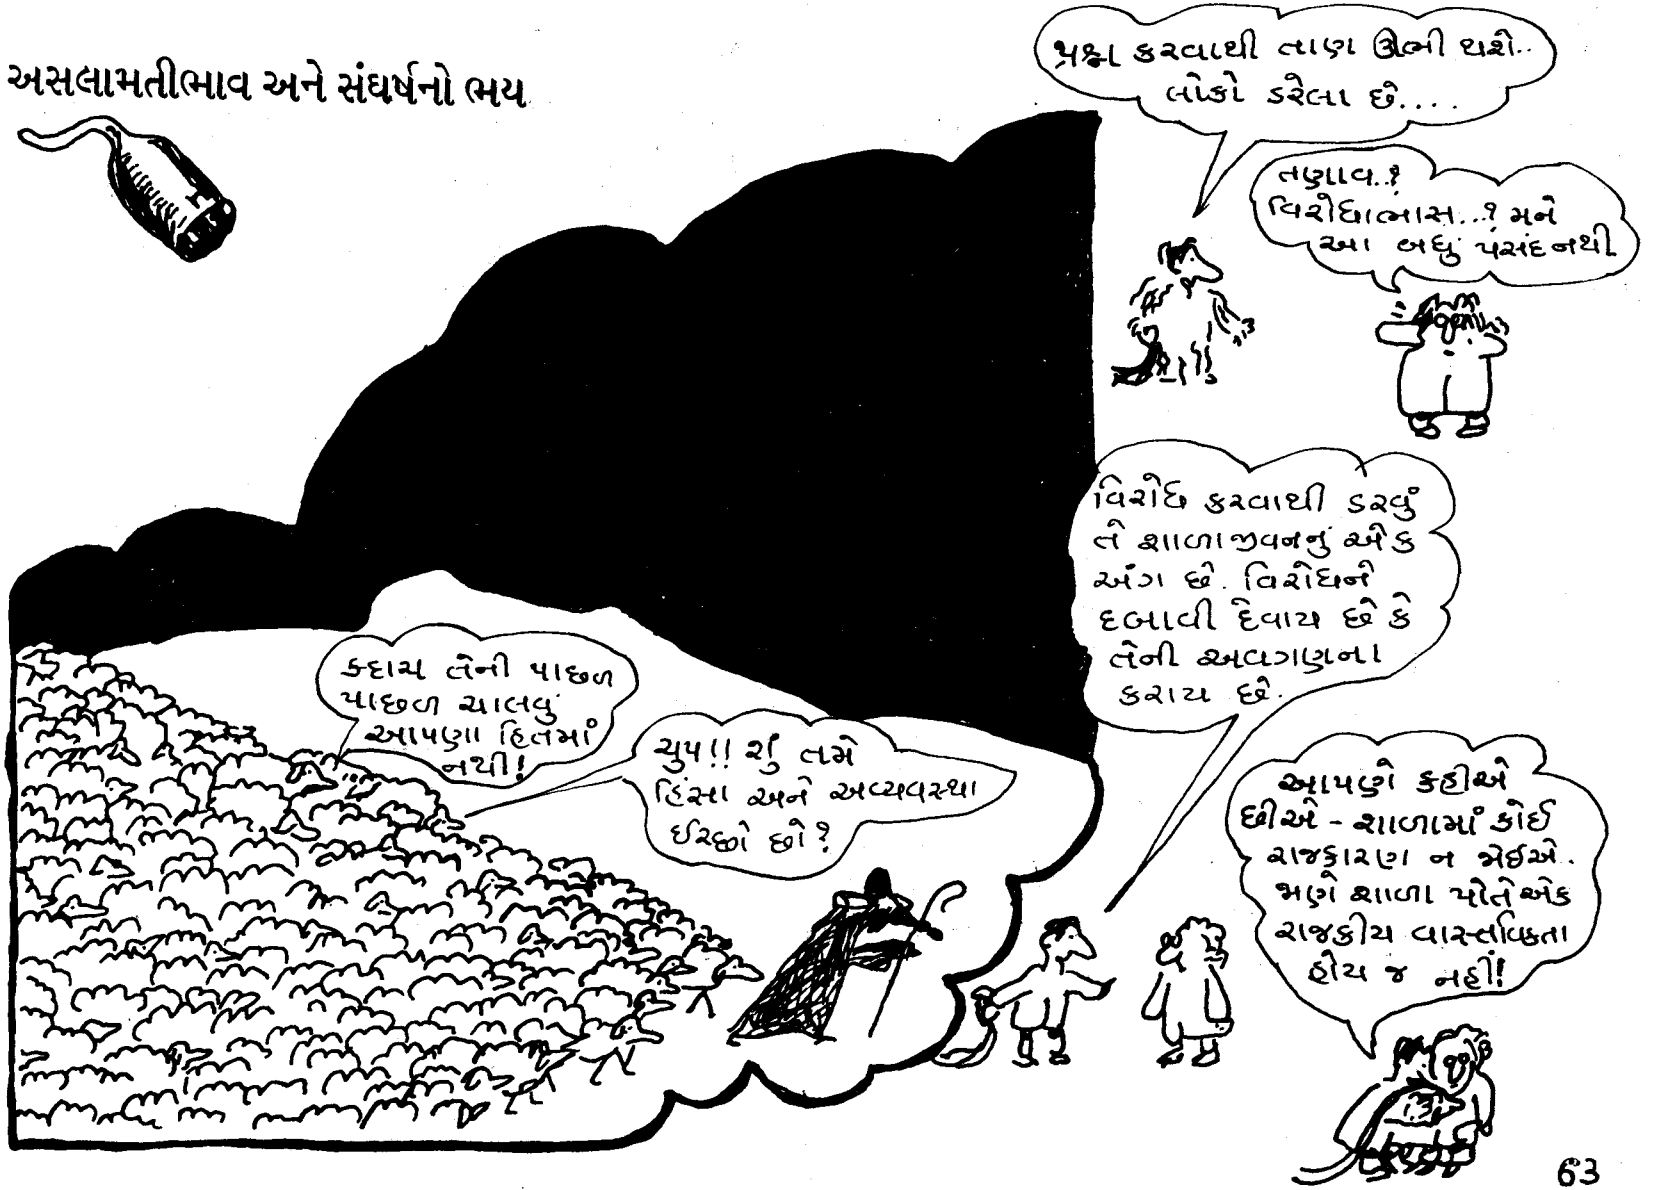 અસલામતીભાવ અને સંઘર્ષનો ભય
પ્રશ્ન કરવાથી તાણ ઊભી થશે..
લોકો ડરેલા છે....
તણાવ..?
વિરોધાભાસ...? મને
આ બધું પસંદ નથી
વિરોધ કરવાથી ડરવું
તે શાળાજીવનનું એક
અંગ છે. વિરોધને
દબાવી દેવાય છે કે
તેની અવગણના
કરાય છે.
કદાચ તેની પાછળ
પાછળ ચાલવું
આપણા હિતમાં
નથી!
ચુપ!! શું તમે
હિંસા અને અવ્યવસ્થા
ઈચ્છો છો?
આપણે કહીએ
છીએ - શાળામાં કોઈ
રાજકારણ ન જોઈએ.
જાણે શાળા પોતે એક
રાજકીય વાસ્તવિકતા
હોય જ નહીં!
63